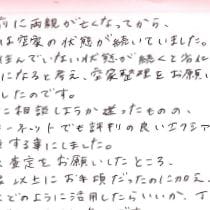 前に両親が亡くなってから、
は空家の状態が続いていました。
住んでいない状態が続くと劣化
になると考え、空家整理をお願い
したのです。
に相談しようか迷ったものの、
ーネットでも評判の良いエクシア
する事にしました。
査定をお願いしたところ、
以上にお手頃だったのに加え、
どのように活用したらいいか、丁